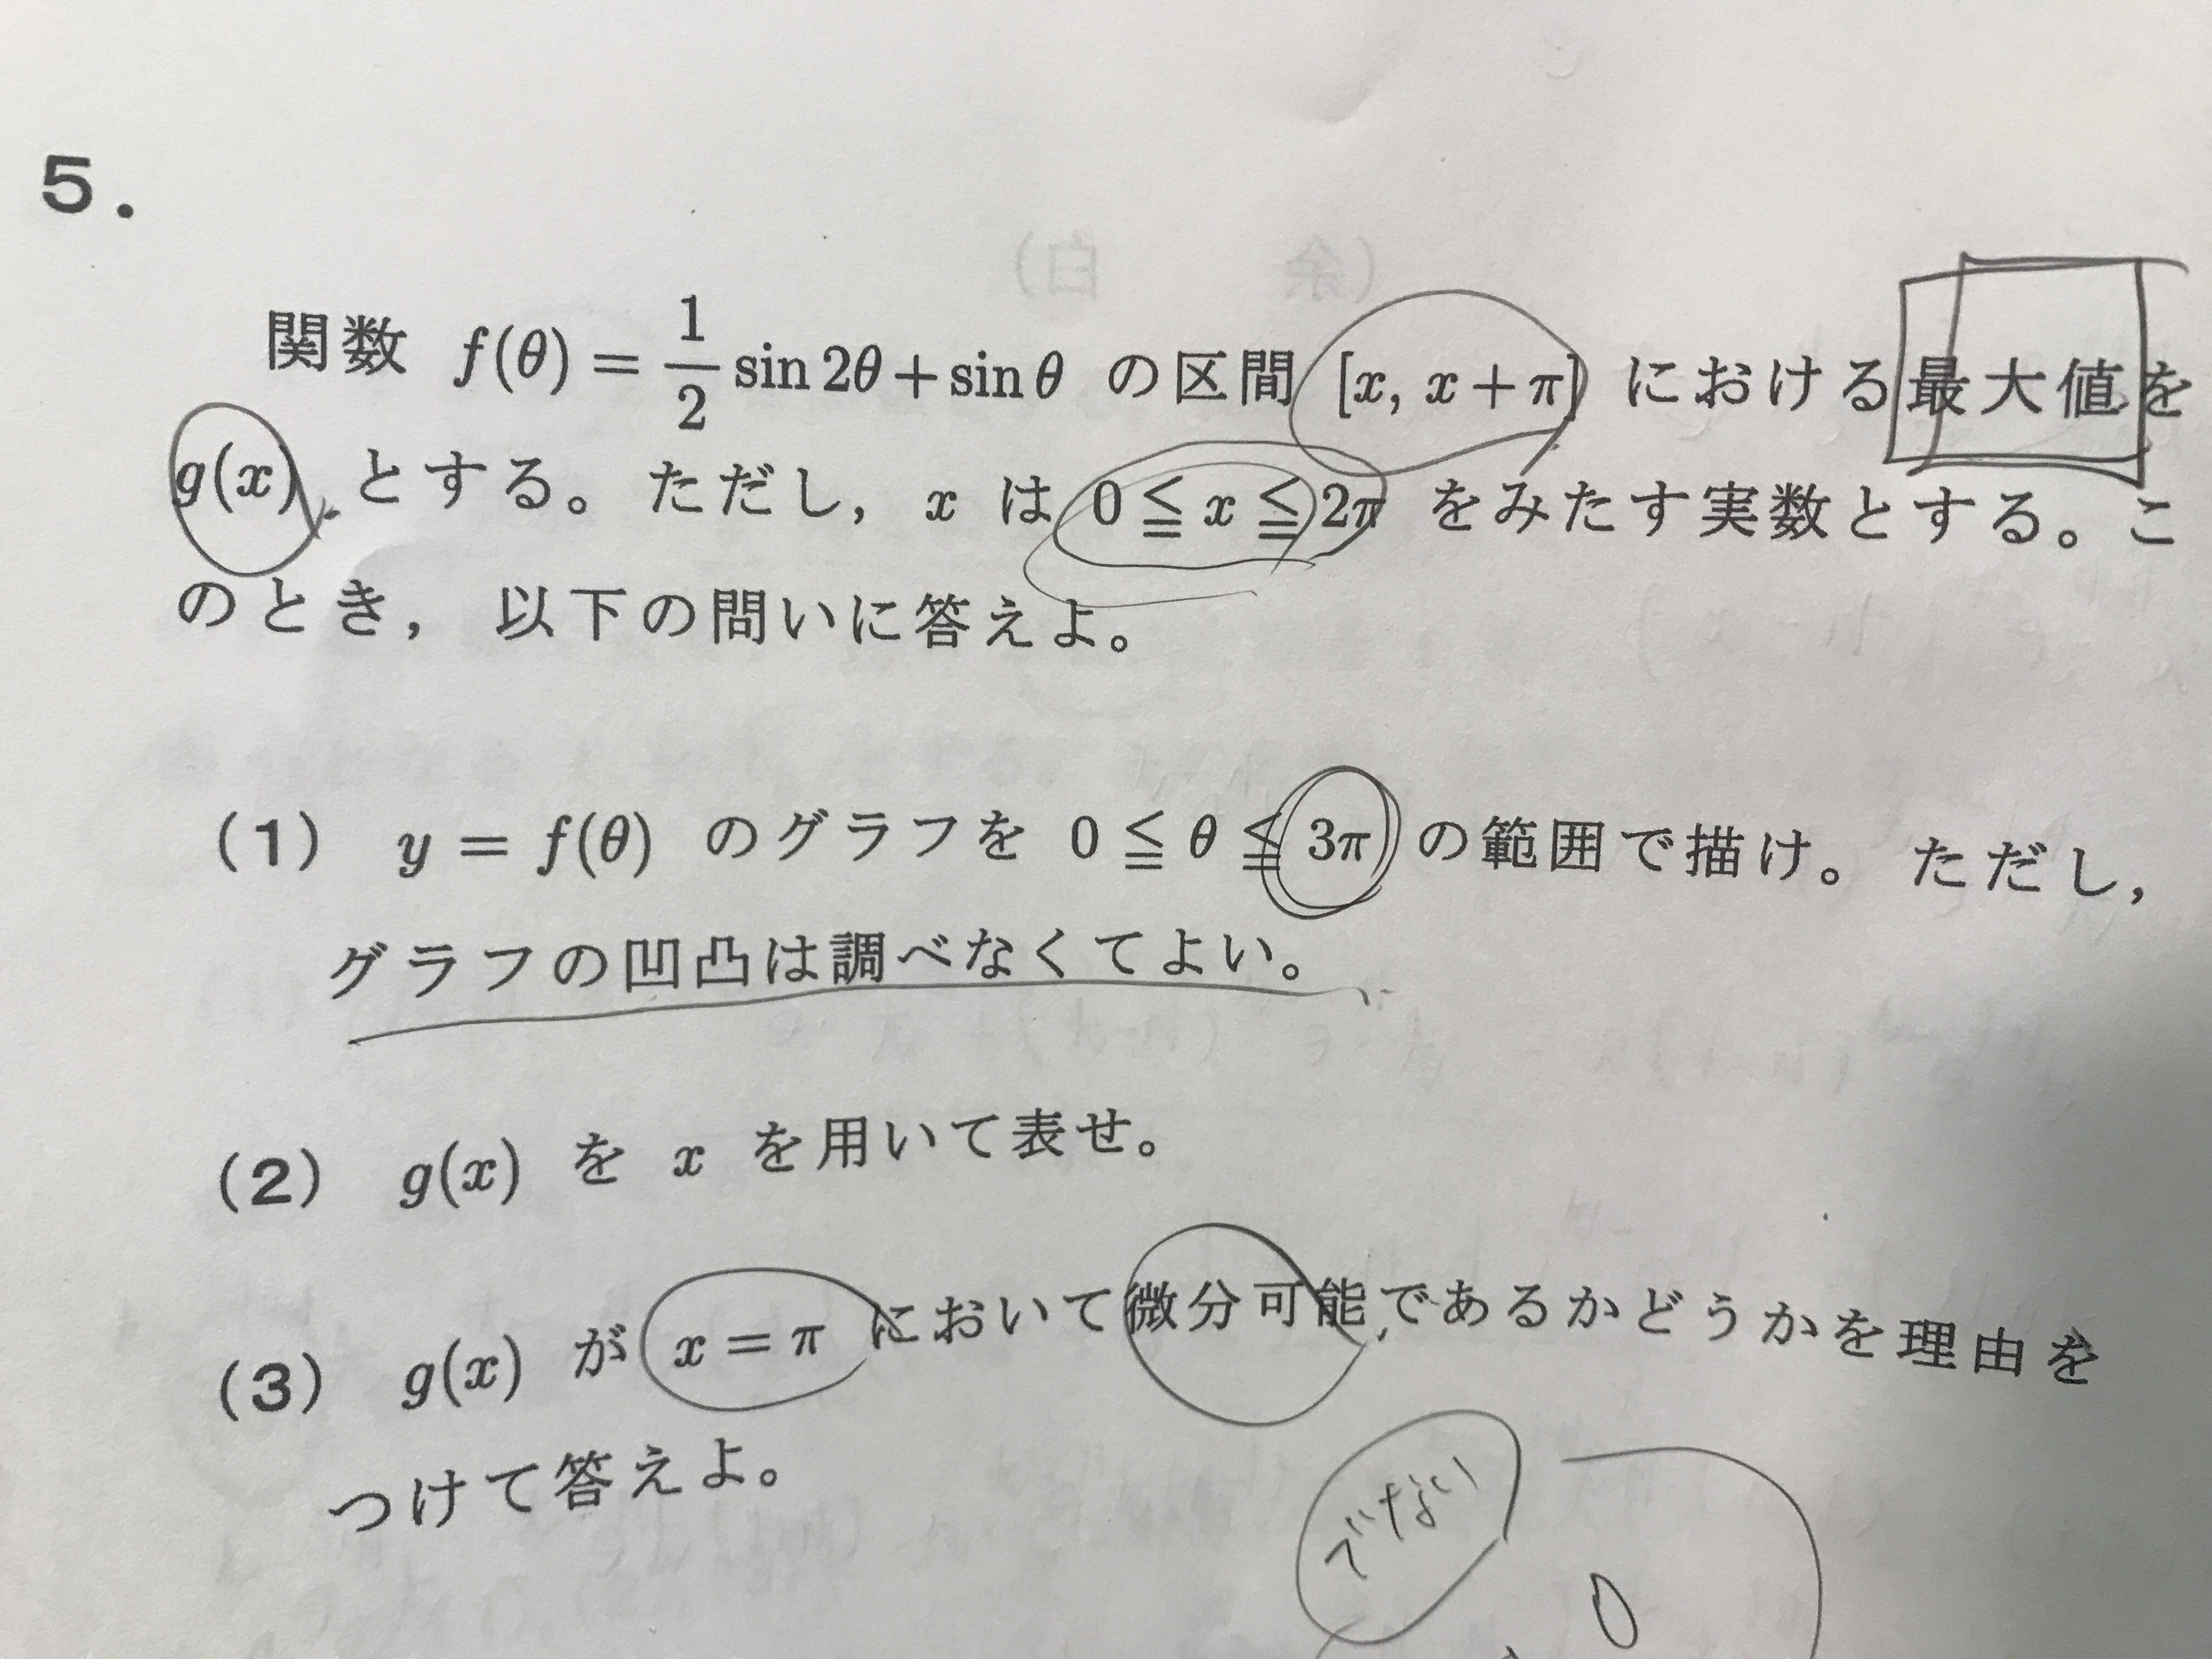 5.
関数 f(θ) = 1/2 sin 2θ + sin θ の区間 [x, x + π] における最大値を
g(x) とする。ただし, x は 0 ≦ x ≦ 2π をみたす実数とする。こ
のとき, 以下の問いに答えよ。
(1) y = f(θ) のグラフを 0 ≦ θ ≦ 3π の範囲で描け。ただし,
グラフの凹凸は調べなくてよい。
(2) g(x) を x を用いて表せ。
(3) g(x) が x = π において微分可能であるかどうかを理由を
つけて答えよ。
でない
0